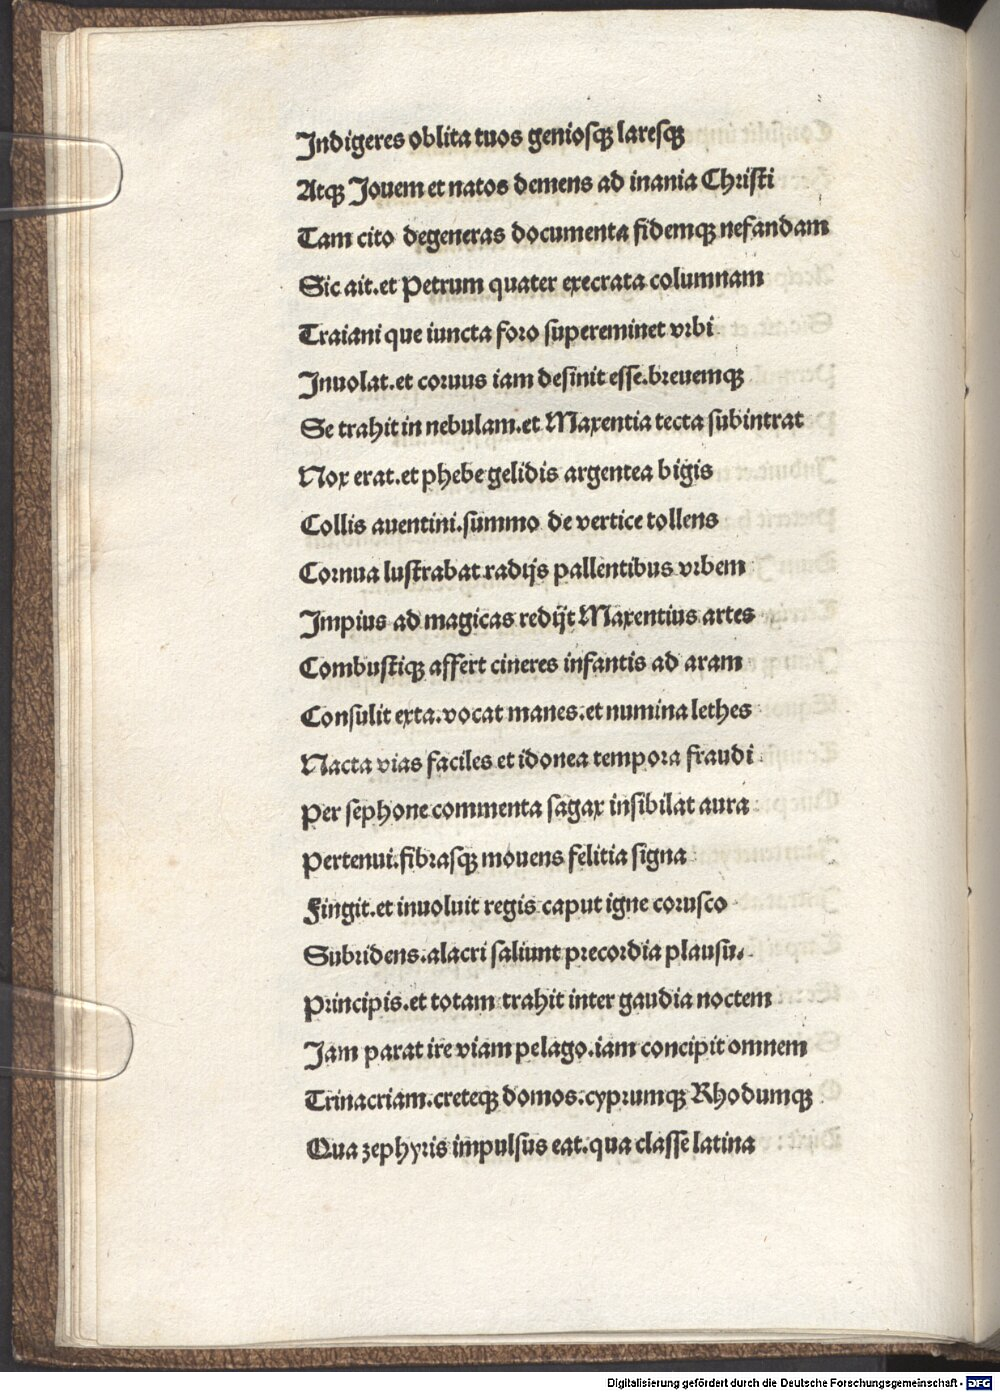 Indigeres oblita tuos geniosqꝫ laresqꝫ
Atqꝫ Jouem et natos demens ad inania Christi
Tam cito degeneras documenta fidemqꝫ nefandam
Sic ait.et Petrum quater execrata columnam
Traiani que iuncta foro supereminet vrbi
Inuolat.et coruus iam desinit esse.breuemqꝫ
Se trahit in nebulam.et Maxentia tecta subintrat
Nox erat.et phebe gelidis argentea bigis
Collis auentini.summo de vertice tollens
Cornua lustrabat radijs pallentibus vrbem
Impius ad magicas redijt Maxentius artes
Combustiqꝫ affert cineres infantis ad aram
Consulit exta.vocat manes.et numina lethes
Nacta vias faciles et idonea tempora fraudi
Per sephone commenta sagax insibilat aura
Pertenui.fibrasqꝫ mouens felitia signa
Fingit.et inuoluit regis caput igne corusco
Subridens.alacri saliunt precordia plausu.
Principis.et totam trahit inter gaudia noctem
Jam parat ire viam pelago.iam concipit omnem
Trinacriam.creteqꝫ domos.cyprumqꝫ Rhodumqꝫ
Qua zephyris impulsus eat.qua classe latina
Digitalisierung gefördert durch die Deutsche Forschungsgemeinschaft - DFG